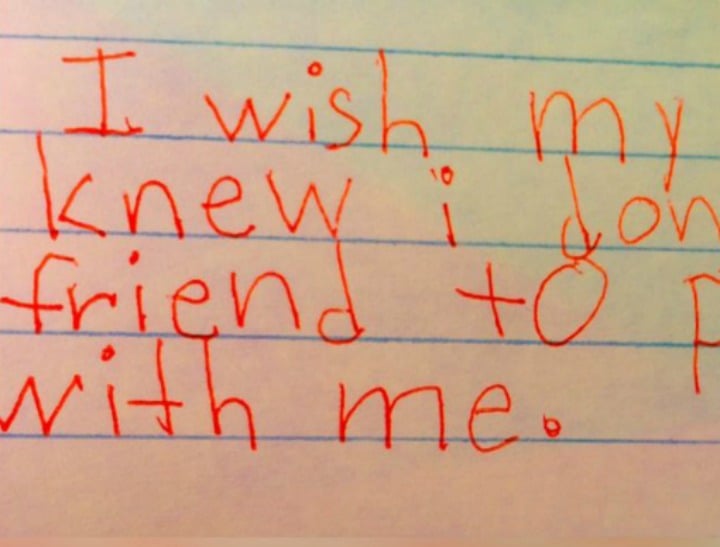 I wish my
knew i don
friend to p
with me.